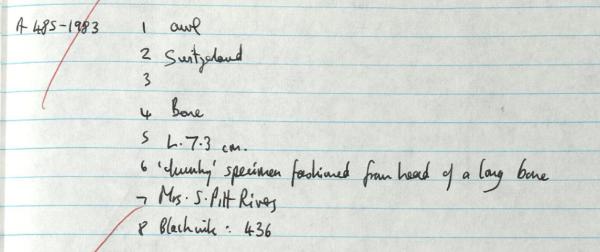 A 485-1983 1 awl
2 Switzerland
3
4 Bone
5 L. 7.3 cm.
6 'chunky' specimen fashioned from head of a long bone
7 Mrs. S. Pitt Rivers
8 Black ink: 436